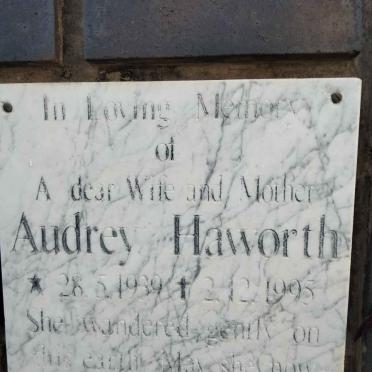 In Loving Memory
of
A dear Wife and Mother
Audrey Haworth
★ 28.5.1939 ✝ 2.12.1995
She wandered gently on
this earth May she now